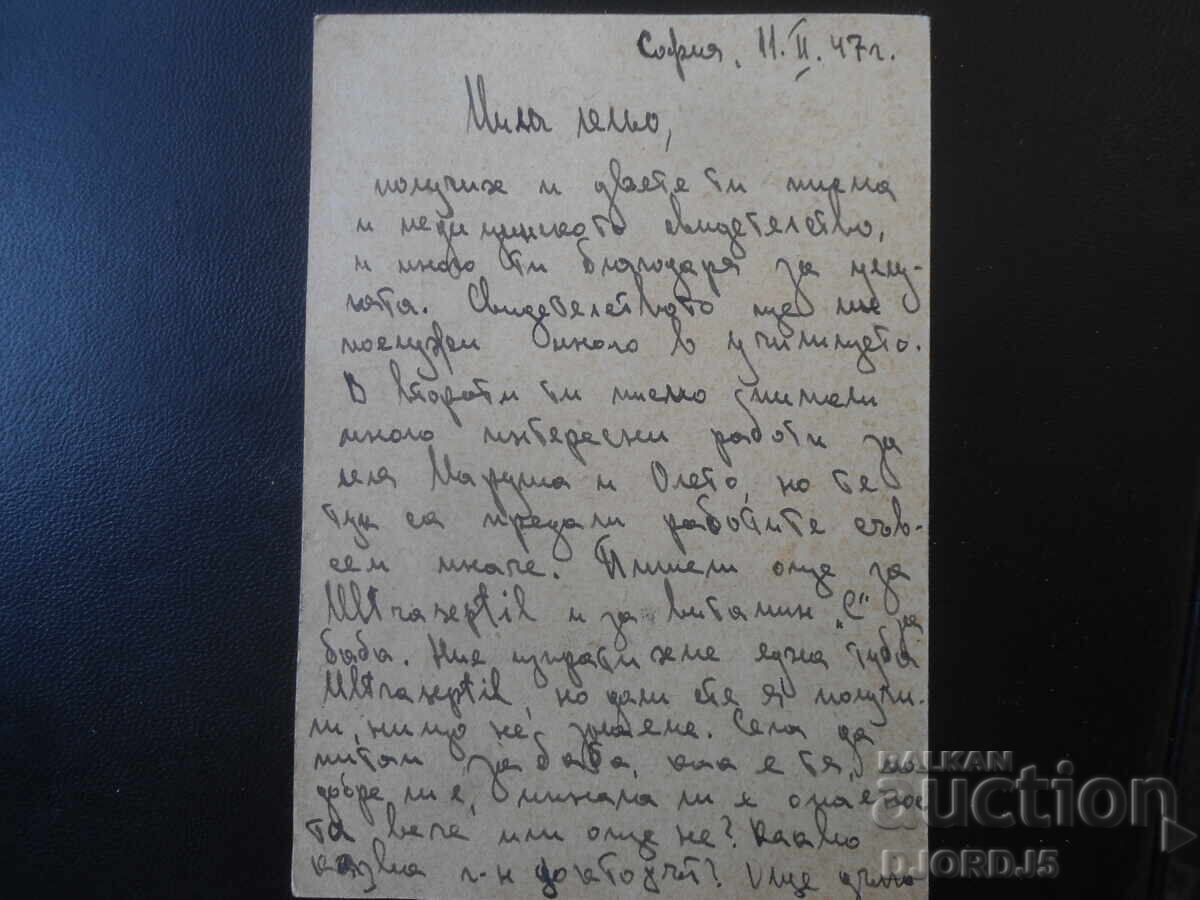 София, 11.II.47г.
Мила лельо,
получих и двете ти писма
и медицинското свидетелство,
и много ти благодаря за услу-
гата. Свидетелството ще ми
послужи много в училището.
В второто ти писмо
много интересни работи за
леля Маруша и Олето, но те
тук са предали работите съв-
сем иначе. Пишеш още за
Ultraseptil и за витамин „C“ за
баба. Ние изпратихме една туба
Ultraseptil, но дали сте я получи-
ли, нищо не знаеме. Сега да
питам за баба, как е тя, по
добре ли е, минала ли я опаснос
та вече или още не? Какво
казва г-н докторът? Още
BALKAN
auction
DJORDJ5